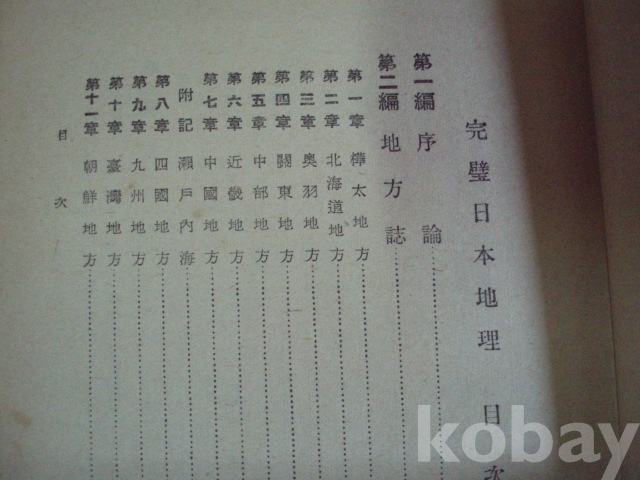 完璧日本地理 目次
第一編 序論
第二編 地方誌
第一章 樺太地方
第二章 北海道地方
第三章 奥羽地方
第四章 關東地方
第五章 中部地方
第六章 近畿地方
第七章 中國地方
附記 瀨戶內海
第八章 四國地方
第九章 九州地方
第十章 臺灣地方
第十一章 朝鮮地方
目次
kobay